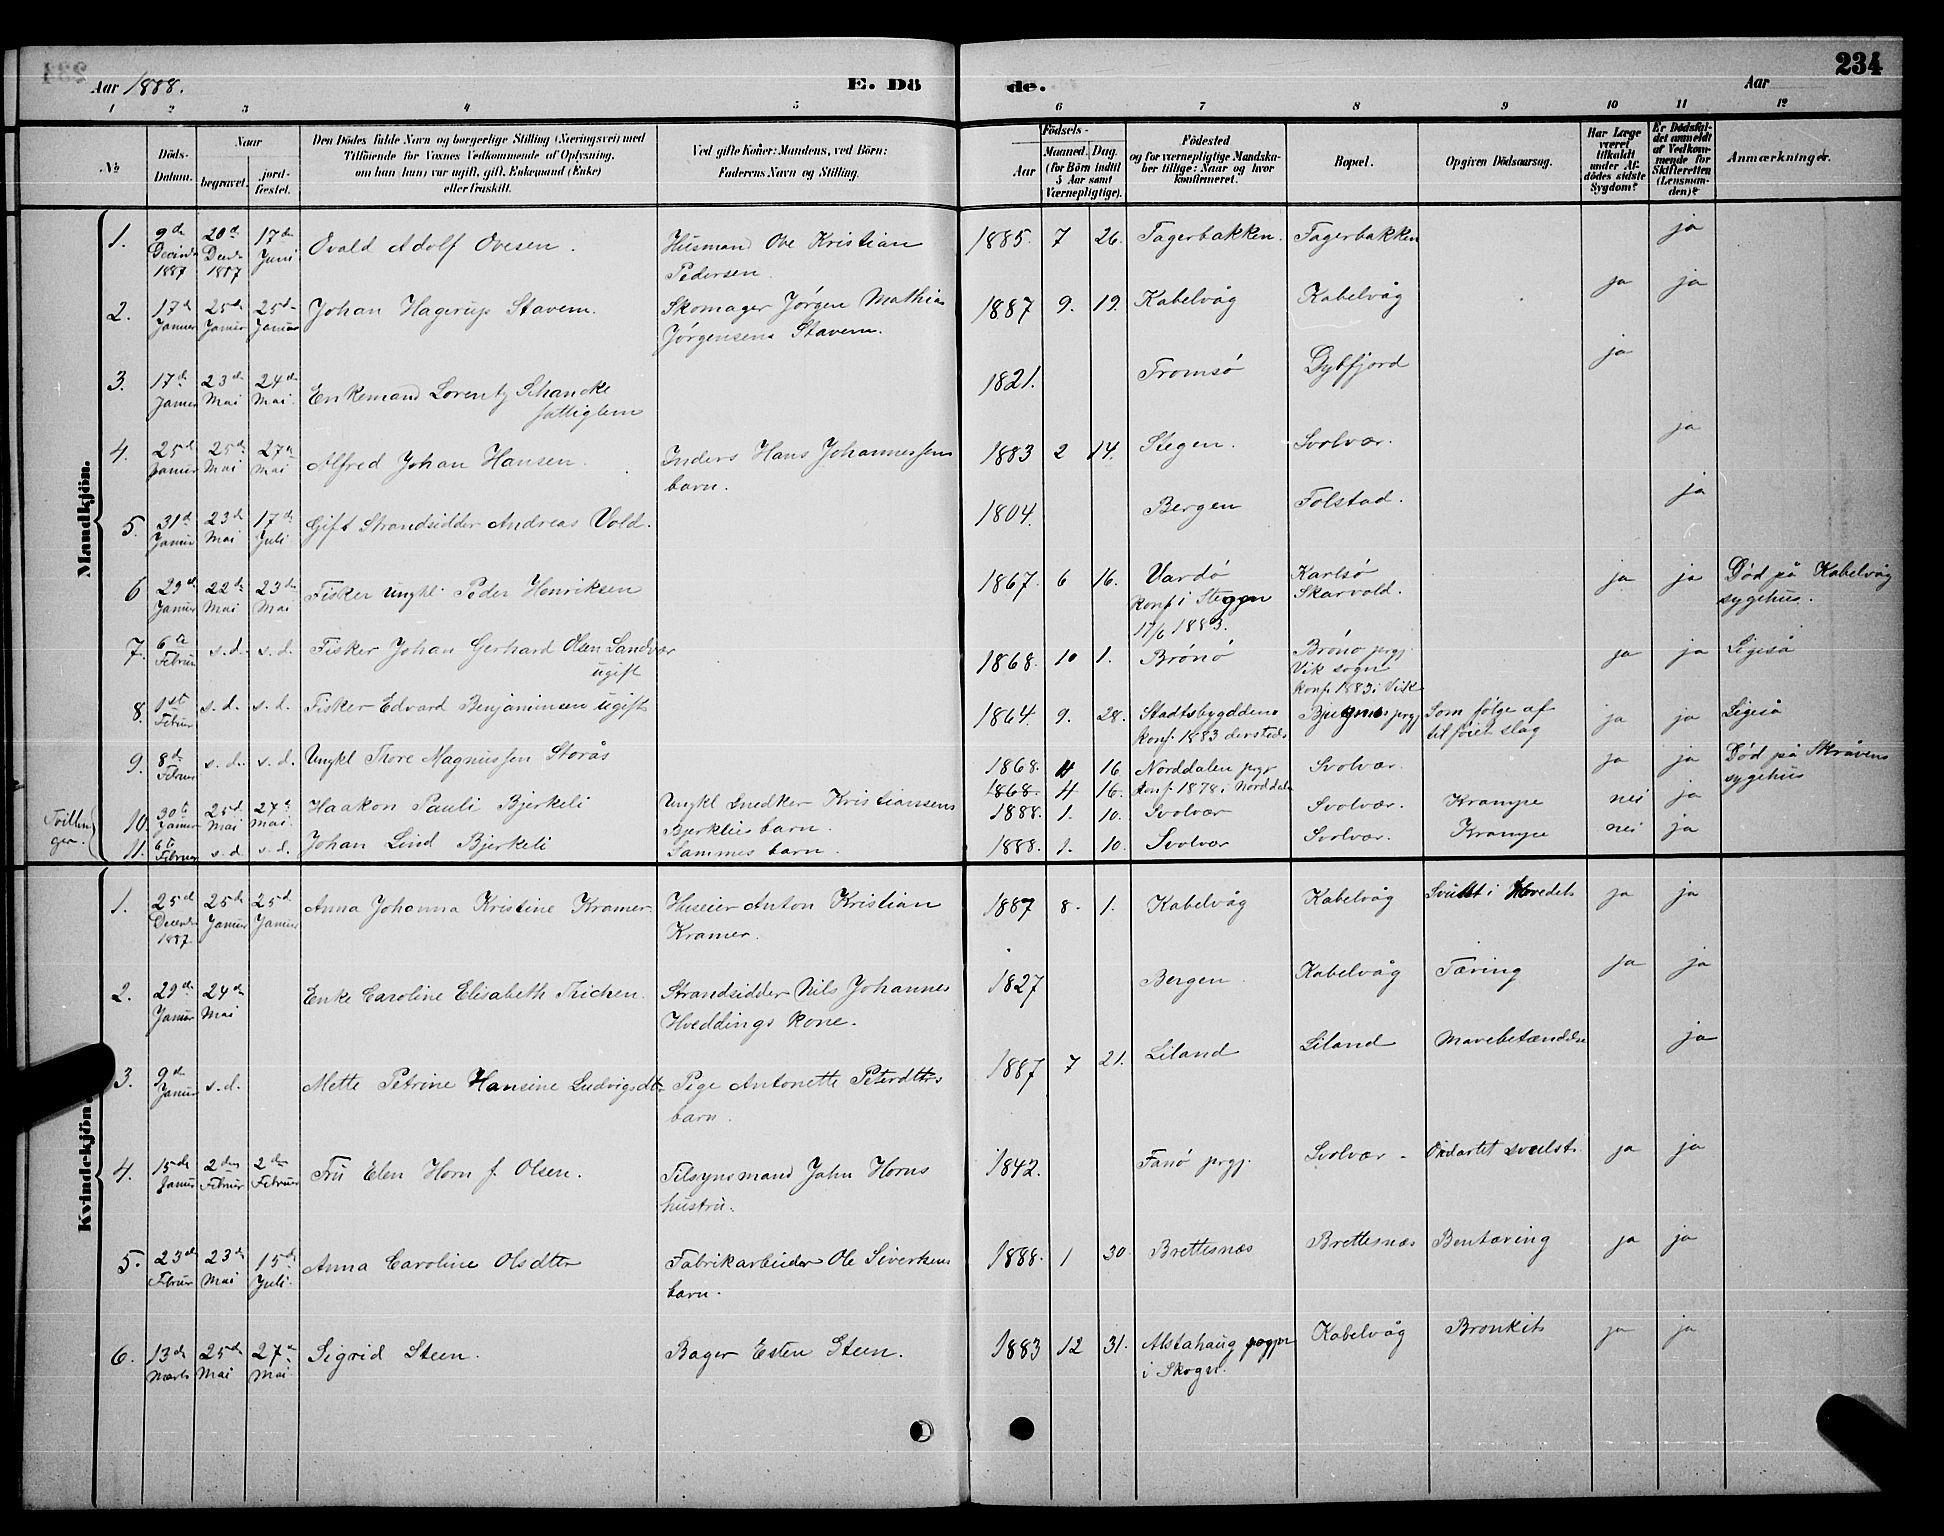 234
Aar 1888.
E. Dö
de.
Aar
1 2 3 4 5 6 7 8 9 10 11 12
No
Döds-
Datum.
Naar
begravet.
jord-
fæstet.
Den Dödes fulde Navn og borgerlige Stilling (Næringsvei) med
Tilföiende for Voxnes Vedkommende af Oplysning,
om han (hun) var ugift, gift, Enkemand (Enke)
eller fraskilt.
Ved gifte Koner: Mandens, ved Börn:
Faderens Navn og Stilling.
Födsels-
Aar
Maaned. Dag.
(for Börn indtil
5 Aar samt
Værnepligtige).
Födested
og for værnepligtige Mandska-
ber tillige: Naar og hvor
konfirmeret.
Bopæl.
Opgiven Dödsaarsag.
Har Læge
været
tilkaldt
under Af-
dödes sidste
Sygdom?
Er Dödsfal-
det anmeldt
af Vedkom-
mende for
Skifteretten
(Lensman-
den)?
Anmærkninger.
Mandkjön.
1. 9de Decembr 1887 20de Decbr 1887 17de Juni Ovald Adolf Ovesen. Husmand Ove Kristian Pedersen. 1885. 7 26. Fagerbakken. Fagerbakken ja
2. 17de Januar 25de Januar 25de Januar Johan Hagerup Stavem. Skomager Jørgen Mathias Jørgensens Stavem. 1887 9. 19. Kabelvåg Kabelvåg ja ja
3. 17de Januar 23de Mai 24de Mai. Enkemand Lorentz Schancke fattiglem 1821. Tromsö Dybfjord ja
4. 25de Januar 25de Mai 27de Mai Alfred Johan Hansen. Inders Hans Johannessens barn. 1883 2 14. Stegen. Svolvær. ja
5. 31de Januar 23de Mai 17de Juli Gift Strandsidder Andreas Vold. 1804. Bergen Folstad. ja
6 29de Januar 22de Mai 23de Mai Fisker ungkl. Peder Henriksen 1867. 6 16. Vardö konf. i Steggen 17/6 1883. Karlsö Skarvold. ja ja Död på Kabelvåg sygehus.
7. 6te Februar s.d. s.d. Fisker Johan Gerhard Olsen Sandvær ugift 1868. 10 1. Brönö Brönö prgj. Vik sogn konf. 1883 i Vik ja ja Ligeså
8. 1ste Februar s.d. s.d. Fisker Edvard Benjaminsen ugift 1864 9. 28. Stadtsbygdden konf. 1883 dersteds Bjugnes prgj Som følge af tilføiet slag ja ja Ligeså
9. 8de Februar s.d. s.d. Ungkl Thore Magnussen Storås 1868. 4 16 Norddalen prgj Svolvær. ja ja Död på Skråvens sygehus
1868. 4 16. konf. 1878 i Norddalen
Tvillinger.
10. 30te Januar 25de Mai 27de Mai. Haakon Pauli Bjerkeli Ungkl Snedker Kristiansens Bjerklies barn. 1888. 1. 10. Svolvær Svolvær. Krampe nei ja
11. 6te Februar s.d s.d. Johan Lind Bjerkeli Sammes barn. 1888. 1. 10. Svolvær Svolvær. Krampe nei ja
Kvindekjön.
1. 25de Decembr 1887. 25de Januar 25de Januar Anna Johanna Kristine Kramer. Huseier Anton Kristian Kramer. 1887 8. 1. Kabelvåg Kabelvåg Svulst i Hovedet ja ja
2. 29de Januar 24de Mai Enke Caroline Elisabeth Trichen. Strandsidder Nils Johannes Hveddings kone. 1827 Bergen Kabelvåg Tæring ja ja
3. 9de Januar s.d. Mette Petrine Hansine Ludvigsdtr Pige Antonette Petersdtrs barn. 1887 7 21. Liland Liland Mavebetændelse ja
4. 15de Januar 2den Februar 2den Februar Fru Elen Horn f. Olsen. Tilsynsmand Jahn Horns hustru. 1842. Fanö prgj. Svolvær. Ondartet svulst. ja ja
5. 23de Februar 23de Mai 15de Juli. Anna Caroline Olsdtr Fabrikarbeider Ole Siverksens barn. 1888. 1 30. Brettesnæs Brettesnæs Bentæring ja ja
6. 13de Marts 25de Mai 27de Mai Sigrid Steen. Bager Esten Steen. 1883 12 31. Alstahaug sogn i Skogn. Kabelvåg Bronkit ja ja